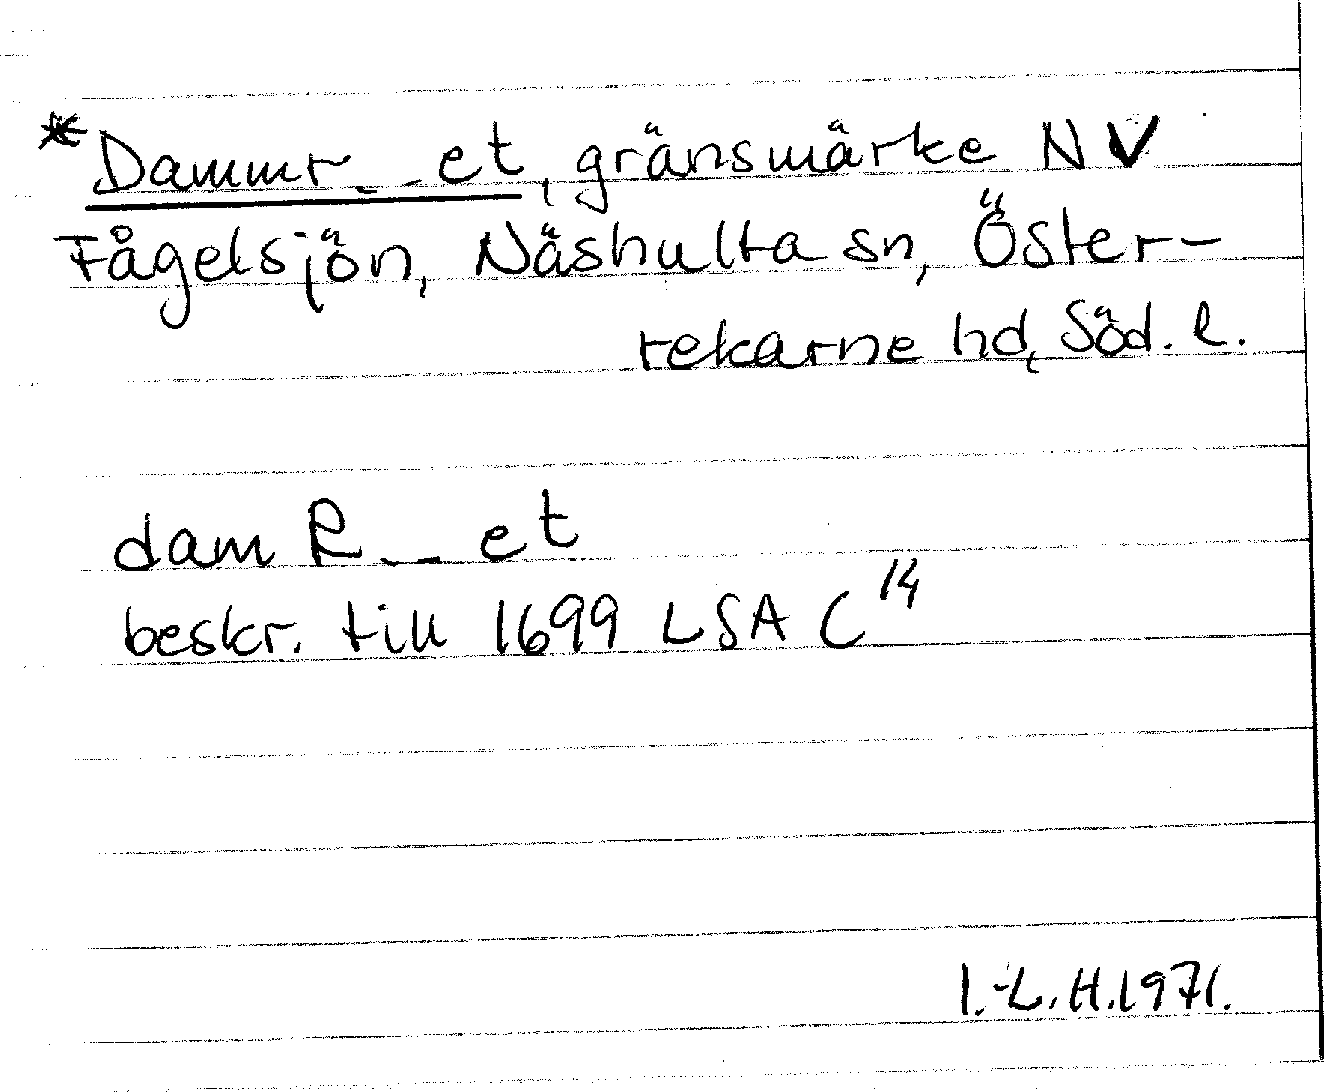 *Dammr_ _et, gränsmärke NV
Fågelsjön, Näshulta sn, Öster-
rekarne hd, Söd. l.
dam R_ _et
beskr. till 1699 LSA C 14
I.-L. H. 1971.